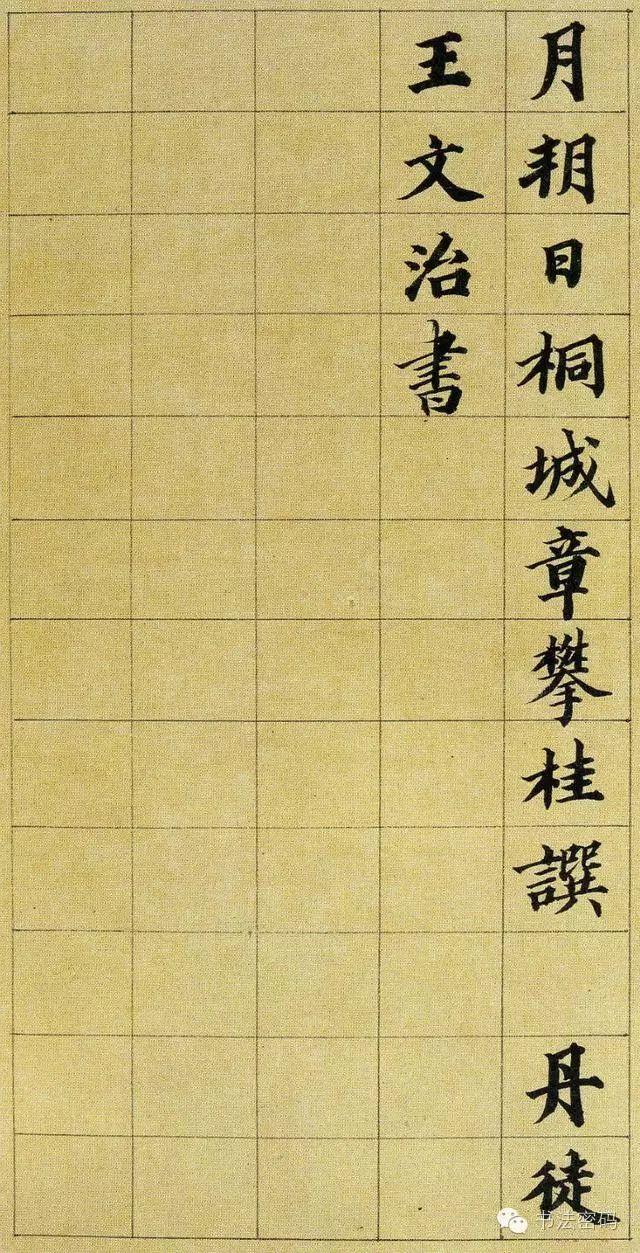 月朔日桐城章攀桂譔 丹徒
王文治書
书法密码